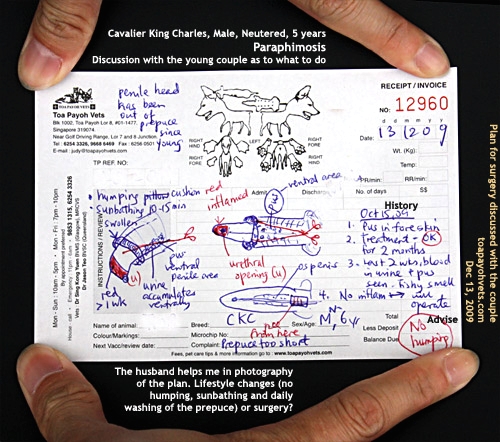 Cavalier King Charles, Male, Neutered, 5 years
Paraphimosis
Discussion with the young couple as to what to do
TOA PAYOH VETS
Toa Payoh Vets
Blk 1002, Toa Payoh Lor 8, #01-1477,
Singapore 319074.
Near Golf Driving Range, Lor 7 and 8 Junction
Tel : 6254 3326, 9668 6469 Fax : 6256 0501
E-mail : judy@toapayohvets.com
TP REF. NO:
penile head
has been
out of
prepuce
since
young
RIGHT HIND
LEFT FORE
LEFT HIND
RIGHT FORE
RECEIPT / INVOICE
NO: 12960
d d m m y y
Date: 13 12 09
Wt.(Kg):
Temp:
RR/min:
No. of days
S$
Discharge
ventral area
pus
• humping pillow cushion
• Sunbathing 10-15 min
swollen
red
inflamed
pw:
ventral
penile area
urine
accumulates
ventrally
red
>1wk
urethral
opening (u)
os penis
(u)
History
Oct 15, 09
1. Pus in foreskin
2. Treatment - OK
for 2 months
in urine + pus
seen. fishy smell
4. No inflam
operate
INSTRUCTIONS / REVIEW
Mon - Sun : 10am - 5pm • Mon - Fri : 7pm - 10pm
By appointment preferred
House call • Emergency
9653 1315, 6254 3326
Vets : Dr Sing Kong Yuen BVMS (Glasgow), MRCVS
Dr Jason Teo BVSC (Queensland)
Name of animal:
Breed: CKC
Sex/Age: MN, 6y
Colour/Markings:
Microchip No:
Next Vacc/review date:
Complaint: Prepuce too short
Total
Less Deposit
Balance Due
Advise
No
humping
Fees, pet care tips & more information? go to ... www.toapayohvets.com
The husband helps me in photography
of the plan. Lifestyle changes (no
humping, sunbathing and daily
washing of the prepuce) or surgery?
Plan for surgery discussed with the couple
toapayohvets.com
Dec 13, 2009